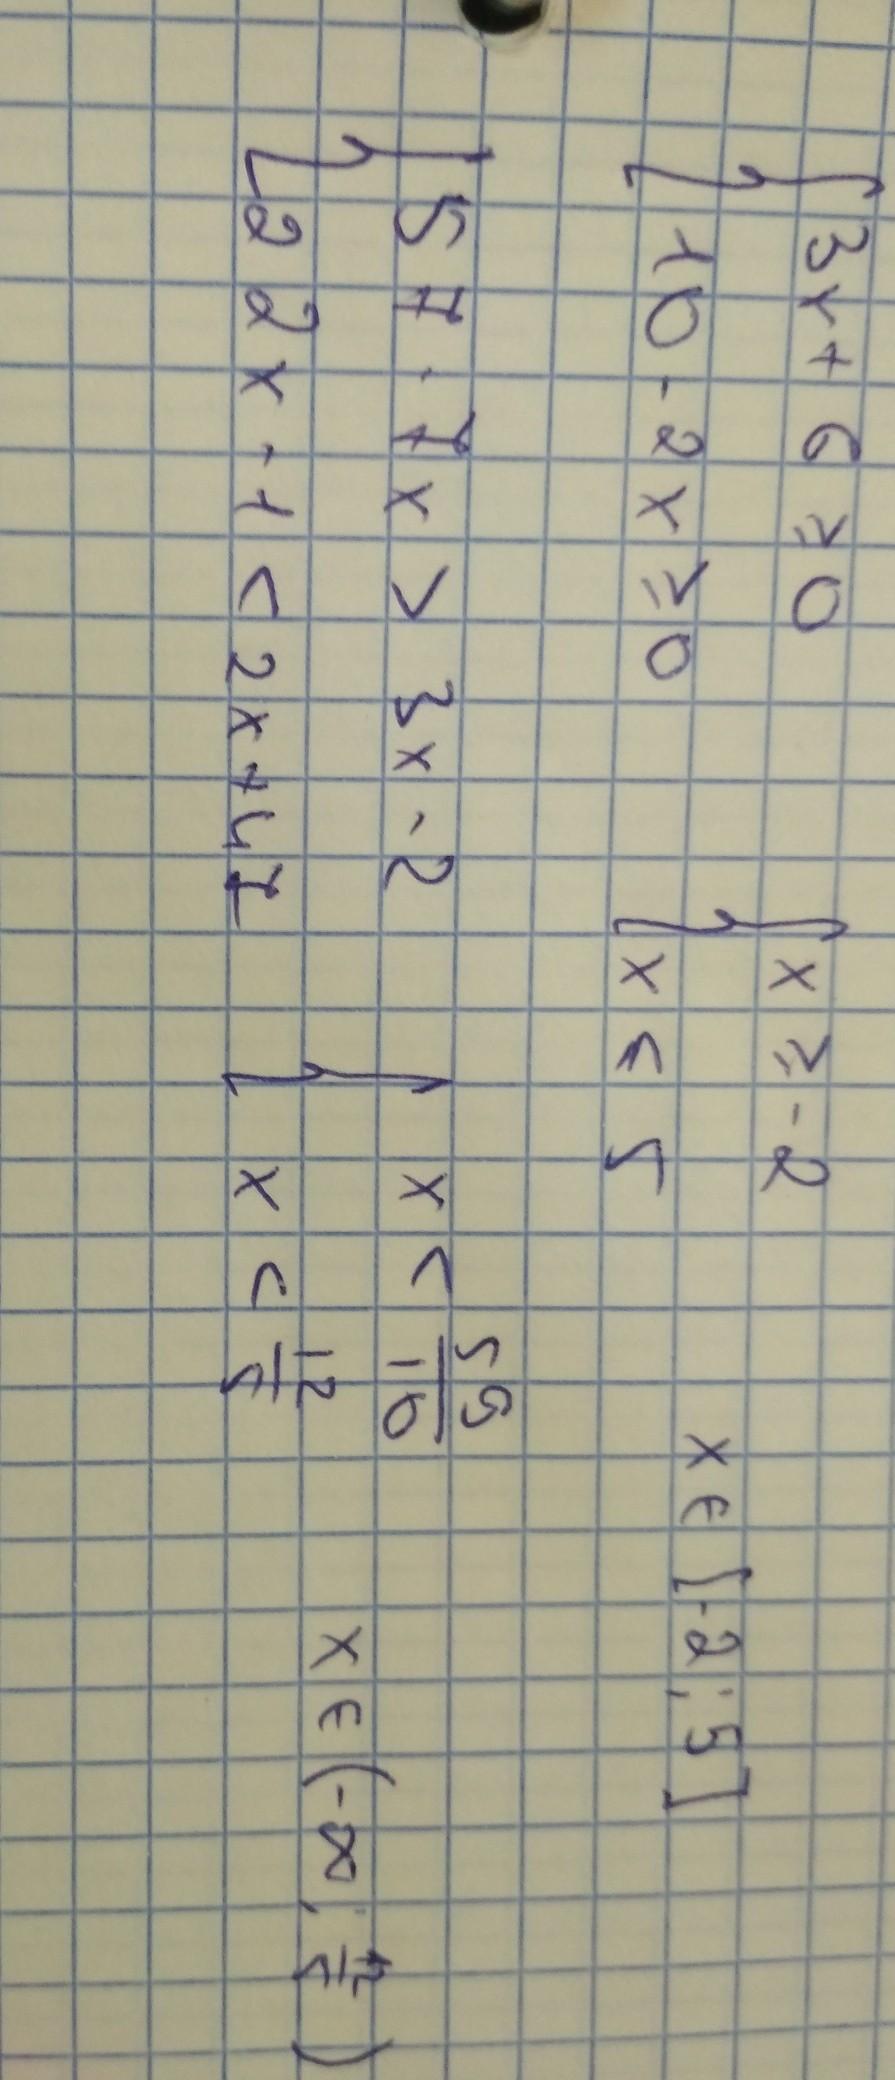 { 3x + 6 ≥ 0
{ 10 - 2x ≥ 0
{ x ≥ -2
{ x ≤ 5
x ∈ [-2; 5]
{ 57 - 7x > 3x - 2
{ 22x - 1 < 2x + 47
{ x < 59/10
{ x < 12/5
x ∈ (-∞; 12/5)